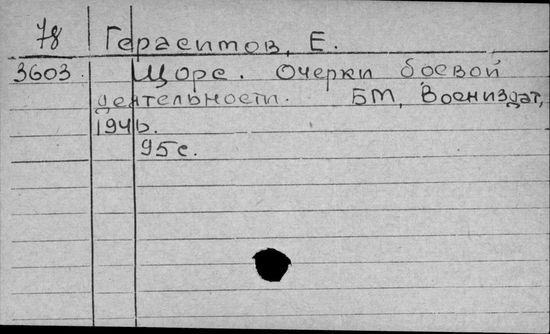 78 Герасимов, Е.
3603. Щорс. Очерки боевой
деятельности. БМ, Воениздат,
194
95 с.